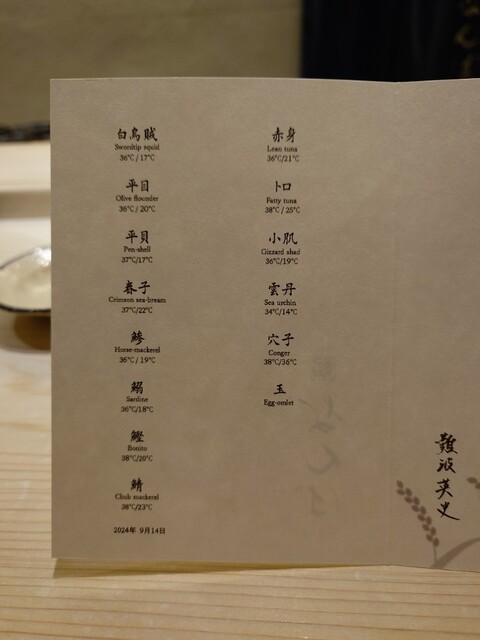 白烏賊
Swordtip squid
36℃ / 17℃
平目
Olive flounder
36℃ / 20℃
平貝
Pen-shell
37℃/17℃
春子
Crimson sea-bream
37℃/22℃
鯵
Horse-mackerel
36℃ / 19℃
鰯
Sardine
36℃/18℃
鰹
Bonito
38℃/20℃
鯖
Chub mackerel
38℃/23℃
2024年 9月14日
赤身
Lean tuna
36℃/21℃
トロ
Fatty tuna
38℃ / 25℃
小肌
Gizzard shad
36℃/19℃
雲丹
Sea urchin
34℃/14℃
穴子
Conger
38℃/36℃
玉
Egg-omlet
難波英史